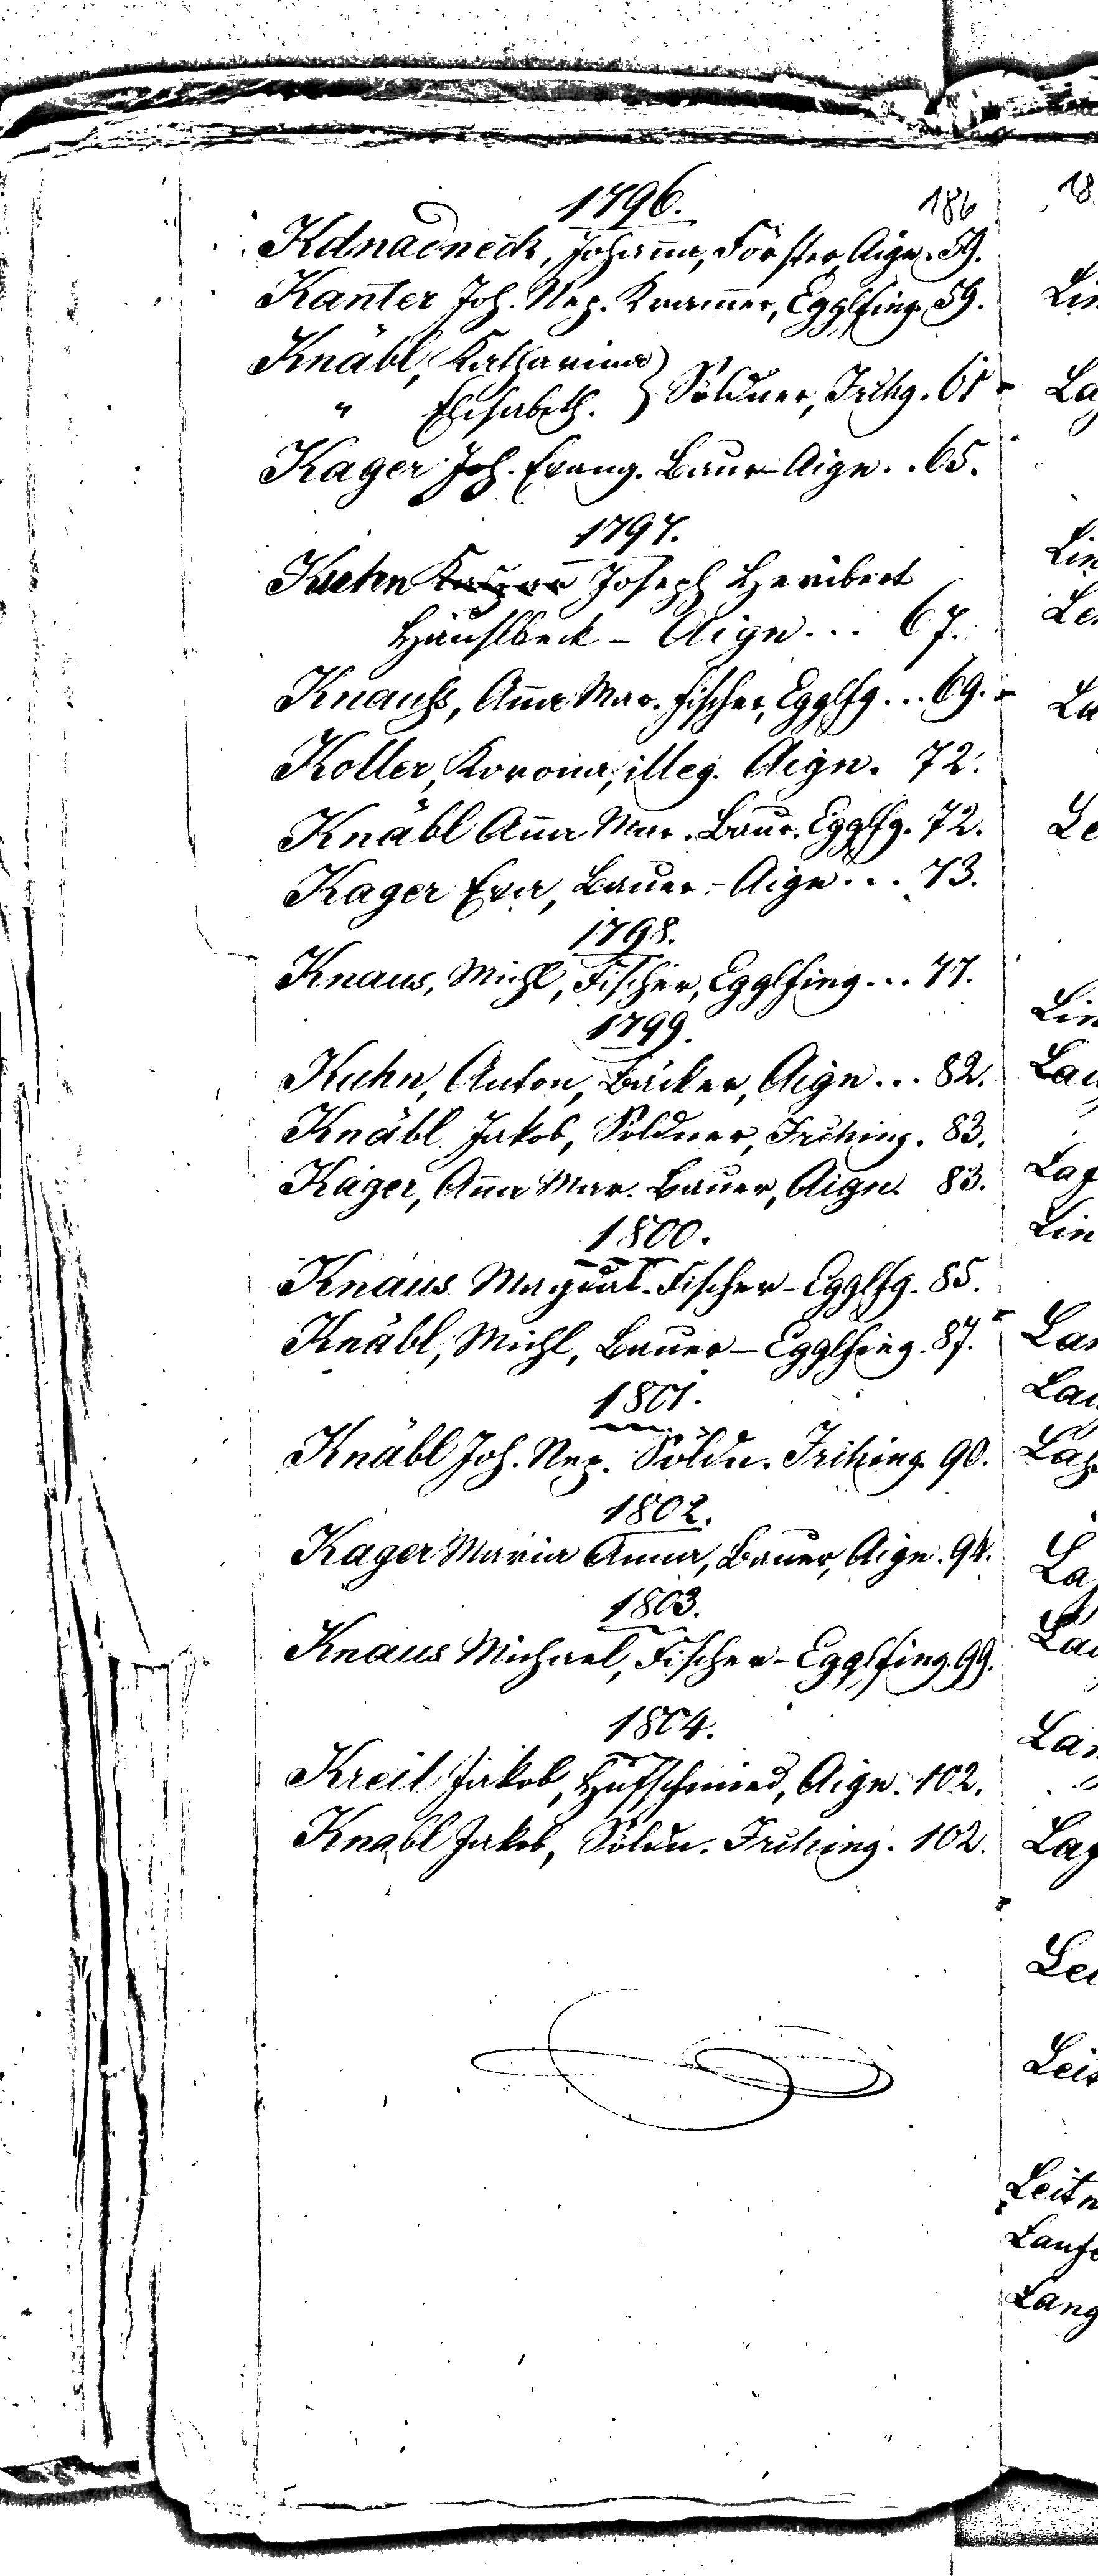 1796.
186
Kdnadneck, Johanna, Förster, Aign. 59.
Kanter Joh. Nep. Kramer, Egglfing. 59.
Knäbl, Katharina
" Elisabeth. } Söldner, Irchg. 61
Kager Joh. Evang. Baur Aign. . 65.
1797.
Kuehn Joseph Heribert
Häuslbeck - Aign . . . 67.
Knauß, Anna Mar. Fischer, Egglfg . . . 69.
Koller, Korona, illeg. Aign. 72.
Knäbl Anna Mar. Baur. Egglfg. 72.
Kager Eva, Bauer - Aign . . . 73.
1798.
Knaus, Michl, Fischer, Egglfing . . . 77.
1799.
Kuhn, Anton, Bäcker, Aign . . . 82.
Knäbl Jakob, Söldner, Irching. 83.
Kager, Anna Mar. Bauer, Aign. 83.
1800.
Knaus Magdal. Fischer - Egglfg. 85.
Knäbl, Michl, Bauer - Egglfing. 87.
1801.
Knäbl Joh. Nep. Söldn. Irching 90.
1802.
Kager Maria Anna, Bauer, Aign. 94.
1803.
Knaus Michael, Fischer - Egglfing. 99.
1804.
Kreil Jakob, Hufschmied, Aign. 102.
Knabl Jakob, Söldn. Irching. 102.